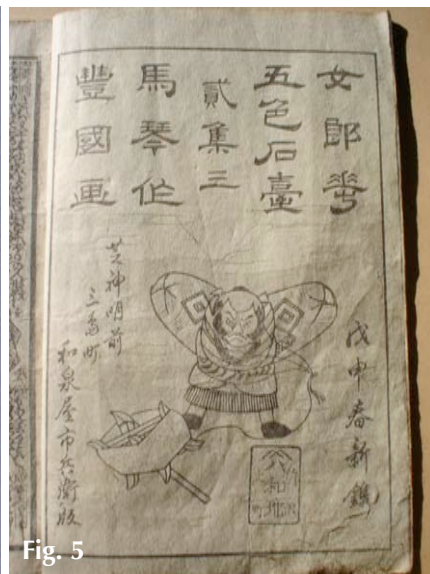 女郎花
五色石臺
貳集三
馬琴作
豐國画
戊申春新鐫
芝神明前
三島町
和泉屋市兵衛版
Fig. 5